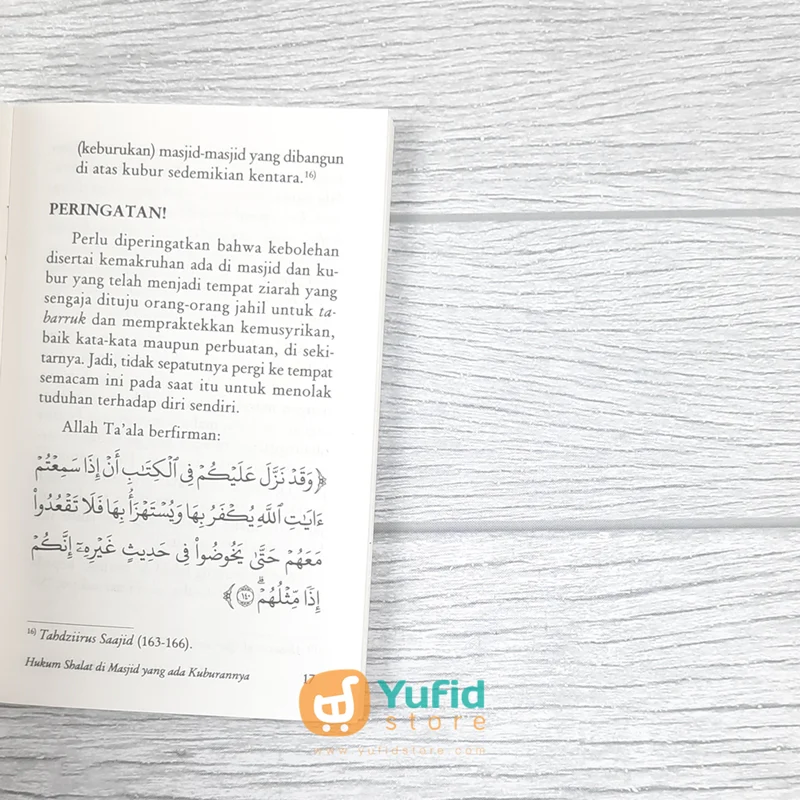 (keburukan) masjid-masjid yang dibangun
di atas kubur sedemikian kentara.¹⁶⁾
PERINGATAN!
Perlu diperingatkan bahwa kebolehan
disertai kemakruhan ada di masjid dan ku-
bur yang telah menjadi tempat ziarah yang
sengaja dituju orang-orang jahil untuk ta-
barruk dan mempraktekkan kemusyrikan,
baik kata-kata maupun perbuatan, di seki-
tarnya. Jadi, tidak sepatutnya pergi ke tempat
semacam ini pada saat itu untuk menolak
tuduhan terhadap diri sendiri.
Allah Ta'ala berfirman:
﴿ وَقَدْ نَزَّلَ عَلَيْكُمْ فِى ٱلْكِتَٰبِ أَنْ إِذَا سَمِعْتُمْ
ءَايَٰتِ ٱللَّهِ يُكْفَرُ بِهَا وَيُسْتَهْزَأُ بِهَا فَلَا تَقْعُدُوا۟
مَعَهُمْ حَتَّىٰ يَخُوضُوا۟ فِى حَدِيثٍ غَيْرِهِۦٓ إِنَّكُمْ
إِذًا مِّثْلُهُمْ ۗ ١٤٠ ﴾
¹⁶⁾ Tahdziirus Saajid (163-166).
Hukum Shalat di Masjid yang ada Kuburannya 17
Yufid
store
www.yufidstore.com